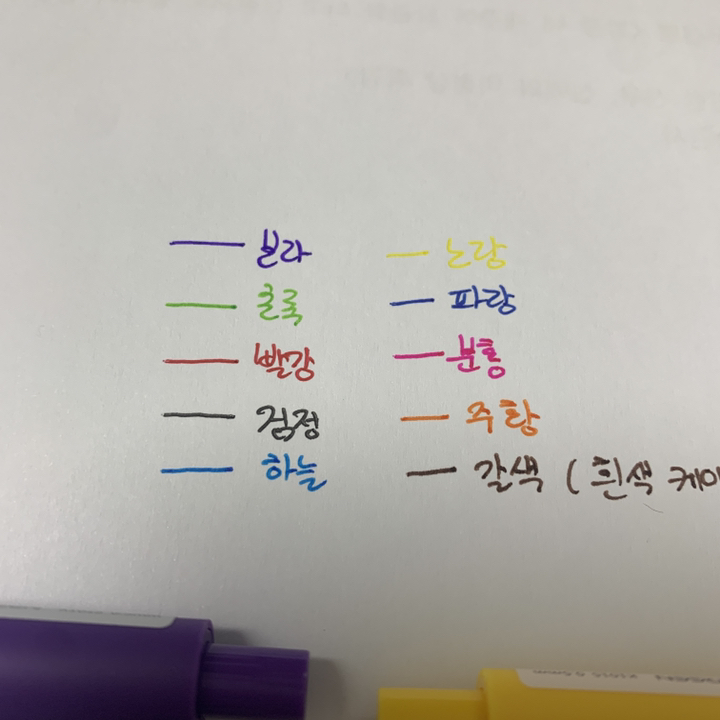 보라
초록
빨강
검정
하늘
노랑
파랑
분홍
주황
갈색 (흰색 케이